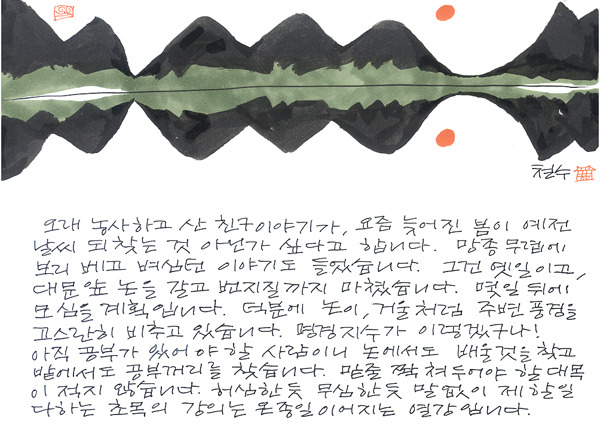 철수
오래 농사하고 산 친구이야기가, 요즘 늦어진 봄이 예전
날씨 되찾는 것 아닌가 싶다고 합니다. 망종 무렵에
보리 베고 벼심던 이야기도 들었습니다. 그건 옛일이고,
대문앞 논을 갈고 번지질까지 마쳤습니다. 몇일 뒤에
모심을 계획입니다. 덕분에 논이, 거울처럼 주변 풍경을
고스란히 비추고 있습니다. 명경지수가 이렇겠구나!
아직 공부가 있어야 할 사람이니 논에서도 배울것을 찾고
밭에서도 공부거리를 찾습니다. 밑줄 쫙 쳐두어야 할 대목
이 적지 않습니다. 허심한듯 무심한듯 말없이 제 할일
다하는 초목의 강의는 온종일 이어지는 열강입니다.